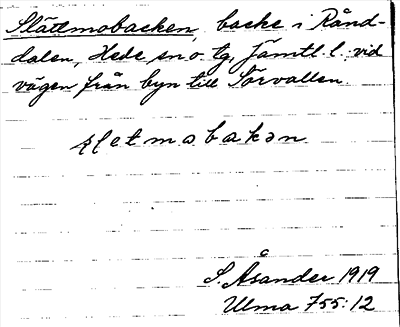 Slättmobacken, backe i Rånd-
dalen, Hede sn o. tg, Jämtl. l. vid
vägen från byn till Sörvallen.
sletmobakən
S. Åsander 1919
Ulma 755:12